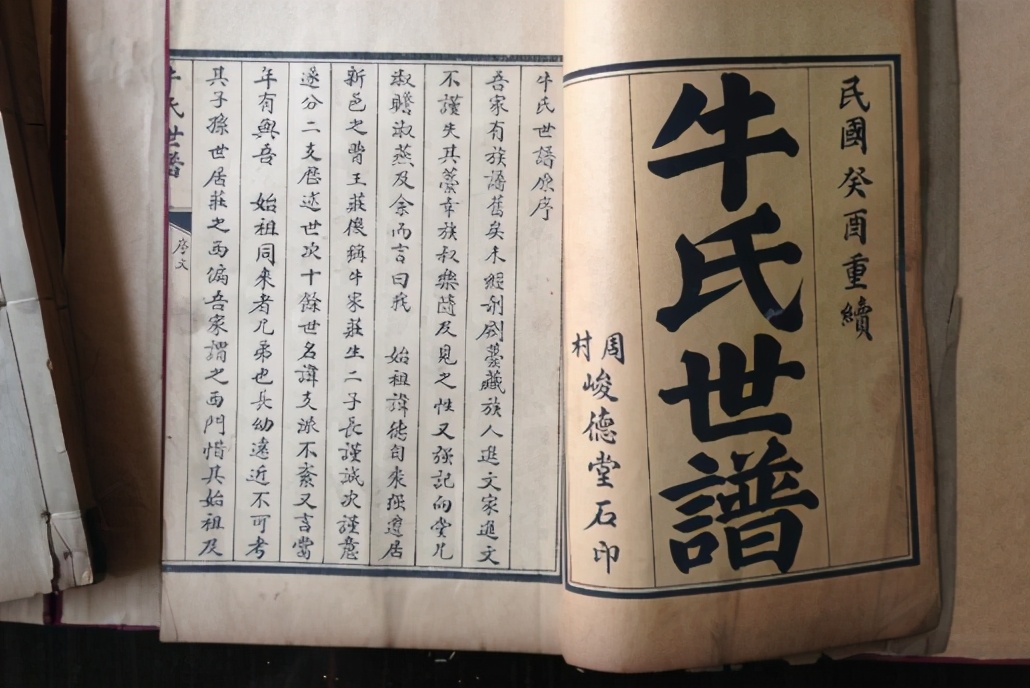 民國癸酉重續
牛氏世譜
周村峻德堂石印
牛氏世譜原序
吾家有族譜舊矣未經剞劂藁藏族人進文家進文
不謹失其藁幸族叔樂隨及見之性又强記向堂兄
淑瞻淑燕及余而言曰我 始祖諱德自來强遵居
新邑之背王莊俊稱牛家莊生二子長謹誠次謹意
遂分二支歷述世次十餘世名諱支派不紊又言當
年有與吾 始祖同來者兄弟也長幼遠近不可考
其子孫世居莊之西偏吾家謂之西門惜其始祖及
牛氏世譜
序文